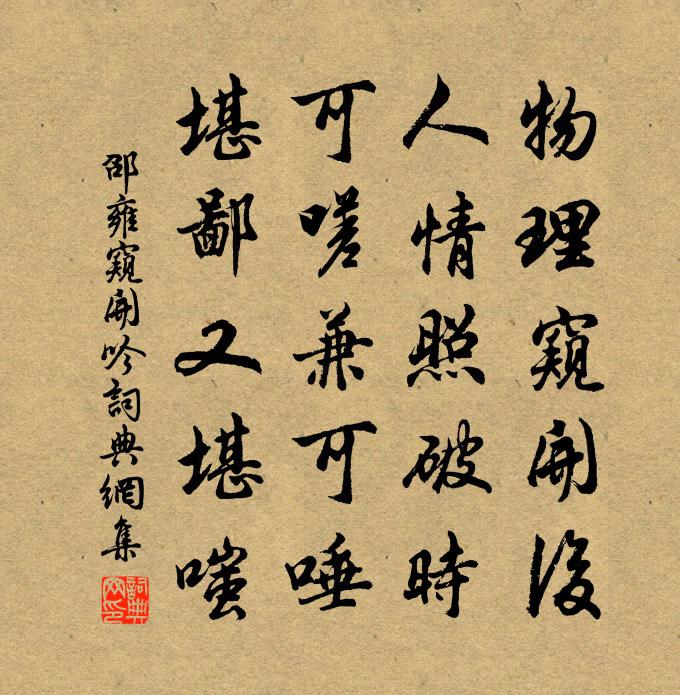 物理窺開後
人情照破時
可嗟兼可唾
堪鄙又堪嗤
邵雍窺開吟詞典網集
詞典网印